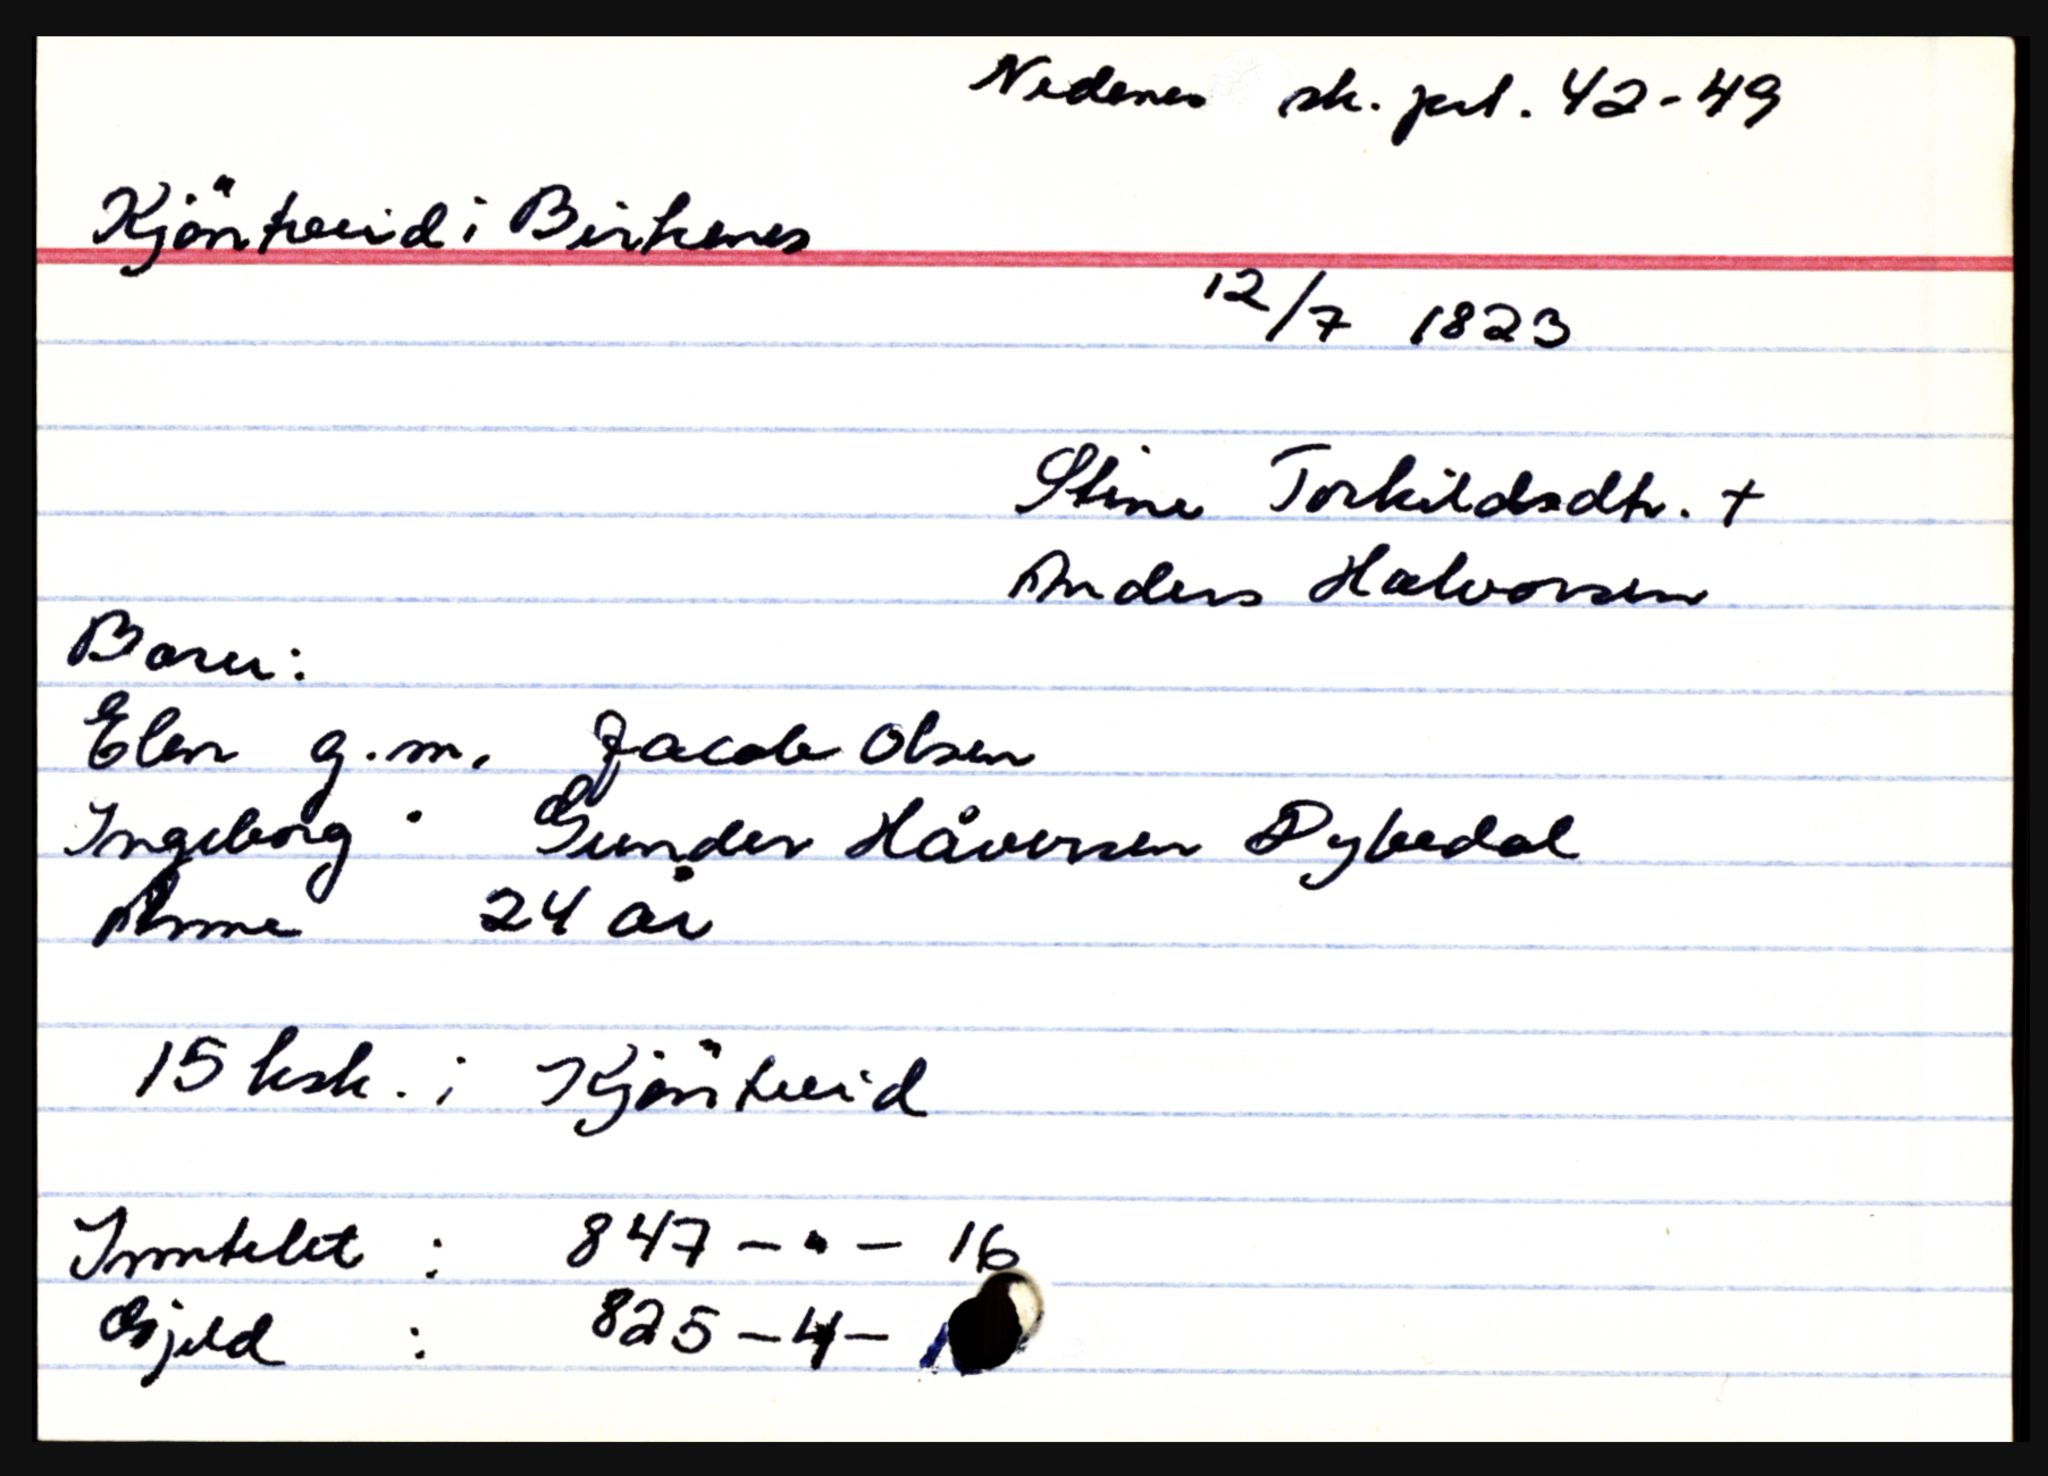 Nedenes sk. prt. 42-49
Kjöntveid i Birkenes
12/7 1823
Stine Torkildsdtr. +
Anders Halvorsen
Barn:
Elen g.m. Jacob Olsen
Ingeborg " Gunder Håversen Dybedal
Anne 24 år
15 ksk. i Kjöntveid
Inntekt : 847 - " - 16
Gjeld : 825 - 4 -